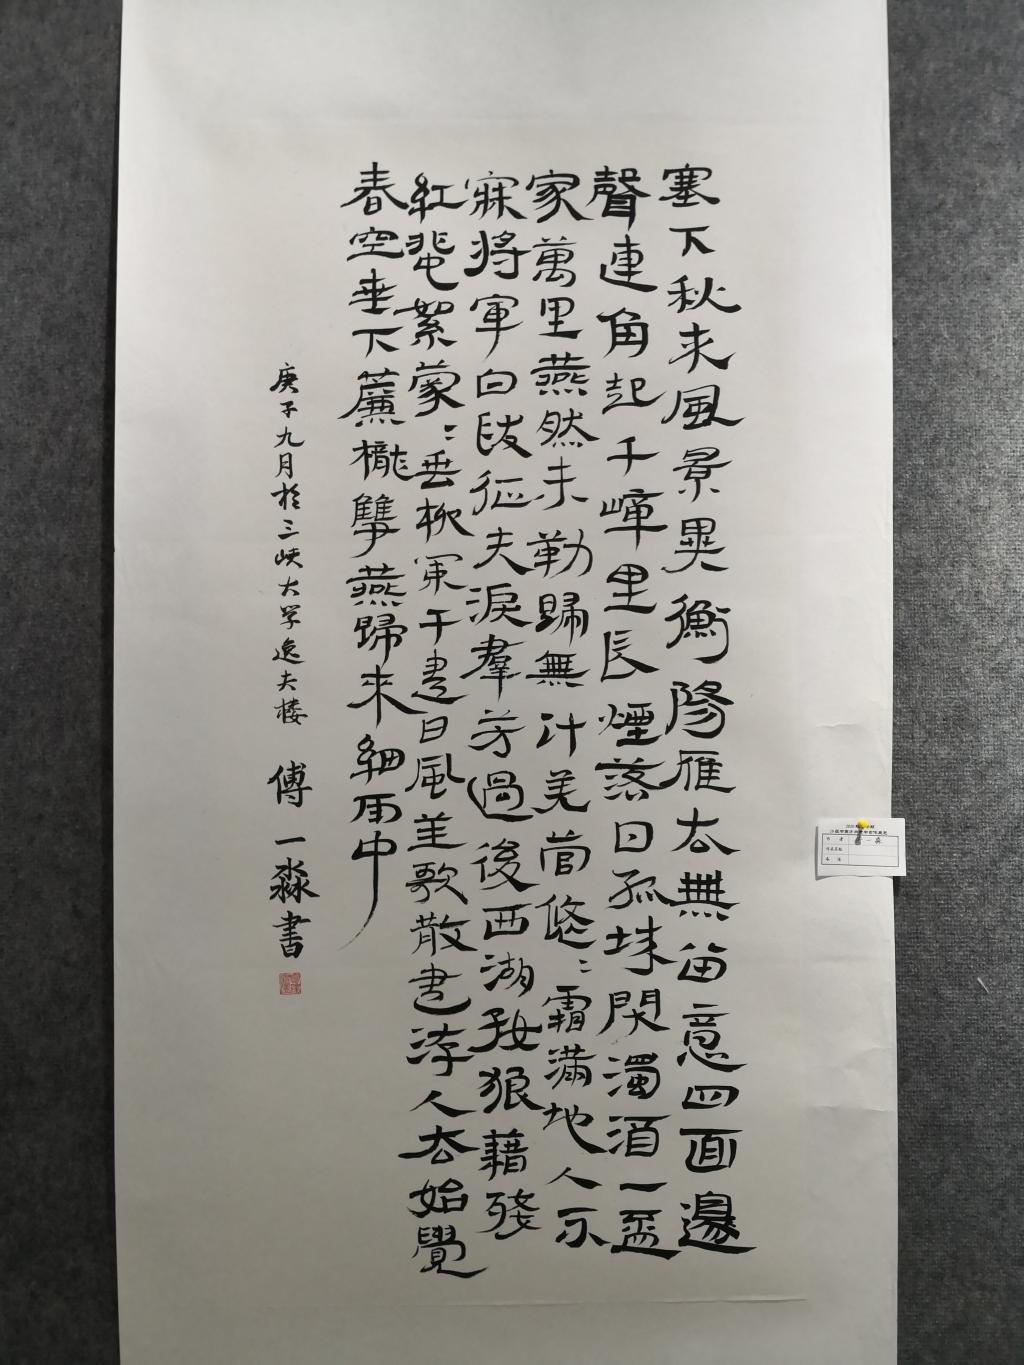 塞下秋来風景異衡陽雁去無留意四面邊
聲連角起千嶂里長煙落日孤城閉濁酒一盃
家萬里燕然未勒歸無計羌管悠〻霜滿地人不
寐將軍白髮征夫淚羣芳過後西湖好狼藉殘
紅飛絮濛〻垂柳闌干盡日風笙歌散盡游人去始覺
春空垂下簾櫳雙燕歸來細雨中
庚子九月於三峡大学逸夫楼 傅一淼書